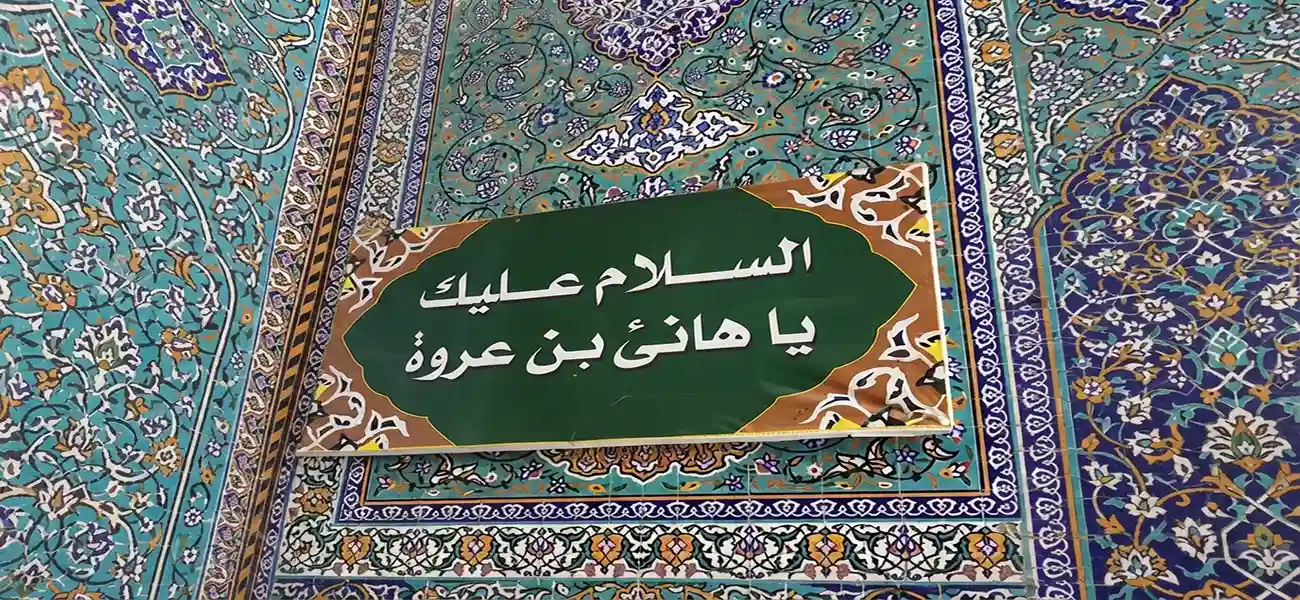 السلام عليك
يا هانئ بن عروة